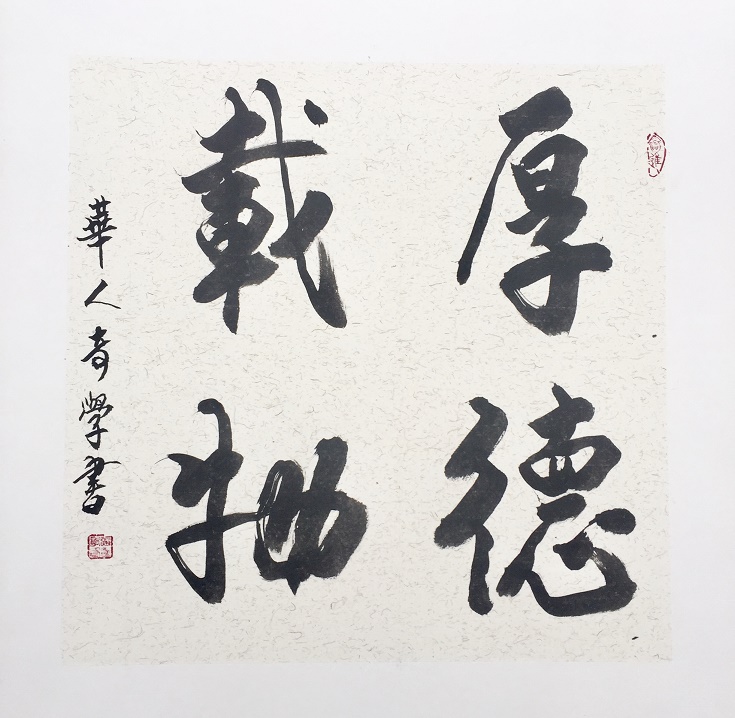 厚德
載物
華人奇學書